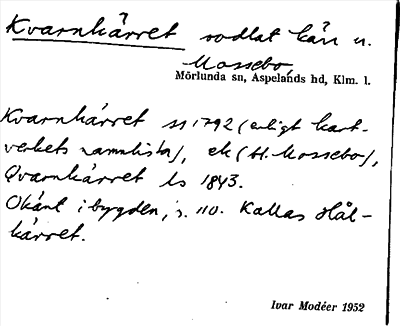 Kvarnkärret odlat kärr u.
Mossebo
Mörlunda sn, Aspelands hd, Klm. l.
Kvarnkärret ss 1792 (enligt kart-
verkets namnlista), ek (H. Mossebo),
Qvarnkärret ls 1843.
Okänt i bygden, s. 110. Kallas Hål-
kärret.
Ivar Modéer 1952